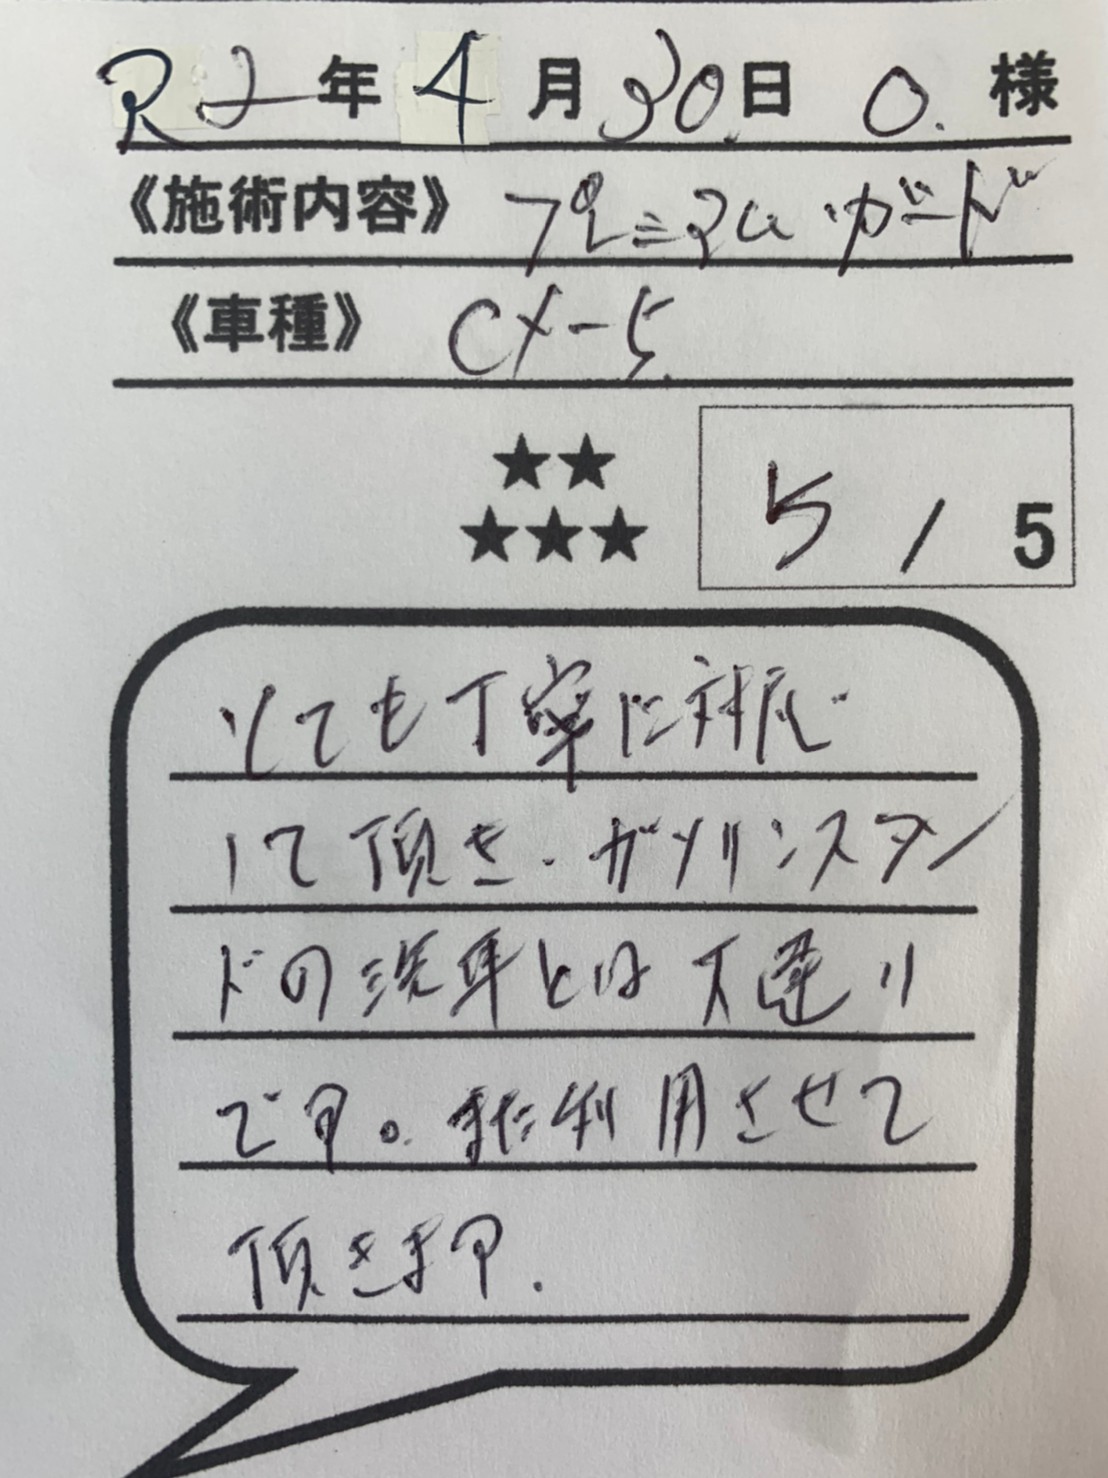 R2年4月30日 O.様
《施術内容》 プレミアム・ガード
《車種》 CX-5
★★
★★★
5/5
とても丁寧に対応
して頂き.ガソリンスタン
ドの洗車とは大違い
です。また利用させて
頂きます.